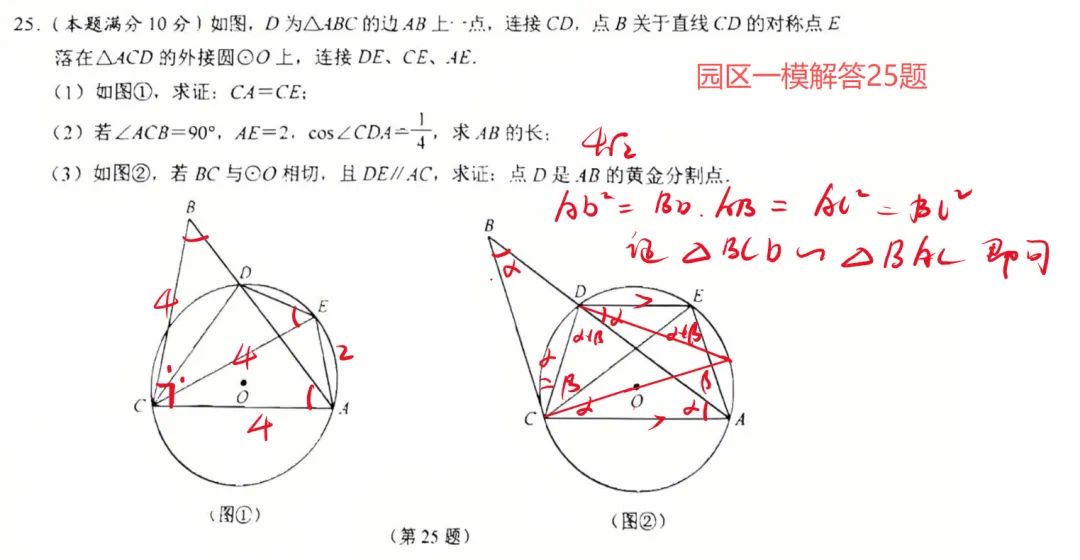 25.（本题满分 10 分）如图，D 为△ABC 的边 AB 上一点，连接 CD，点 B 关于直线 CD 的对称点 E
落在△ACD 的外接圆⊙O 上，连接 DE、CE、AE.
园区一模解答25题
（1）如图①，求证：CA＝CE；
（2）若∠ACB＝90°，AE＝2，cos∠CDA＝1/4，求 AB 的长；
4√2
（3）如图②，若 BC 与⊙O 相切，且 DE∥AC，求证：点 D 是 AB 的黄金分割点.
AD² = BD·AB = AC² = BC²
证 △BCD ∽ △BAC 即可
B
D
E
4
4
2
C
O
A
4
（图①）
B
α
D
E
α
α+β
α+β
α
β
β
C
α
O
α
A
（图②）
（第 25 题）